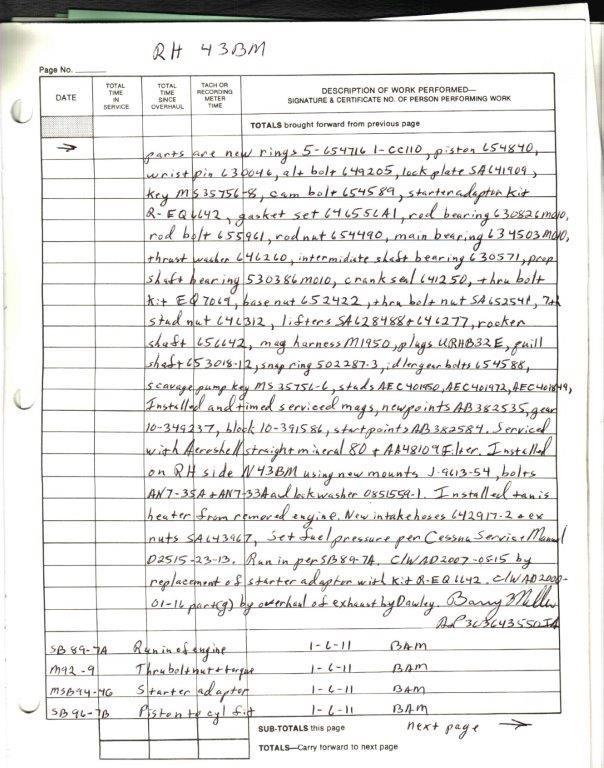 RH 43BM
Page No.
DATE
TOTAL TIME IN SERVICE
TOTAL TIME SINCE OVERHAUL
TACH OR RECORDING METER TIME
DESCRIPTION OF WORK PERFORMED—
SIGNATURE & CERTIFICATE NO. OF PERSON PERFORMING WORK
TOTALS brought forward from previous page
→ parts are new rings 5-654716 1-CC110, piston 654840,
wrist pin 630046, alt bolt 649205, lock plate SA641909,
key MS35756-8, cam bolt 654589, starter adaptor kit
R-EQ6642, gasket set 646556A1, rod bearing 630826M010,
rod bolt 655961, rod nut 654490, main bearing 634503M010,
thrust washer 646260, intermidate shaft bearing 630571, prop
shaft bearing 530386M010, crank seal 641250, thru bolt
kit EQ7069, base nut 652422, thru bolt nut SA652541, 7th
stud nut 646312, lifters SA628488 + 646277, rocker
shaft 656642, mag harness M1950, plugs URHB32E, quill
shaft 653018-12, snap ring 502287-3, idler gear bolts 654588,
scavage pump key MS 35756-6, studs AEC401950, AEC401972, AEC401849,
Installed and timed serviced mags, new points AB382535, gear
10-349237, block 10-391586, start points AB382584. Serviced
with Aeroshell straight mineral 80 + AA48109 Filter. Installed
on RH side N43BM using new mounts J-9613-54, bolts
AN7-35A + AN7-33A and lock washer 0851559-1. Installed tanis
heater from removed engine. New intake hoses 642917-2 + ex
nuts SA643967, Set fuel pressure per Cessna Service Manual
D2515-23-13. Run in per SB89-7A. C/W AD2007-05-15 by
replacement of starter adaptor with kit R-EQ6642. C/W AD2000-
01-16 part(g) by overhaul of exhaust by Dawley. Barry Miller
AP 363643550IA
SB 89-7A Run in of engine 1-6-11 BAM
M92-9 Thru bolt nut + torque 1-6-11 BAM
MSB94-7G Starter adaptor 1-6-11 BAM
SB96-7B Piston to cyl fit 1-6-11 BAM
SUB-TOTALS this page next page →
TOTALS—Carry forward to next page